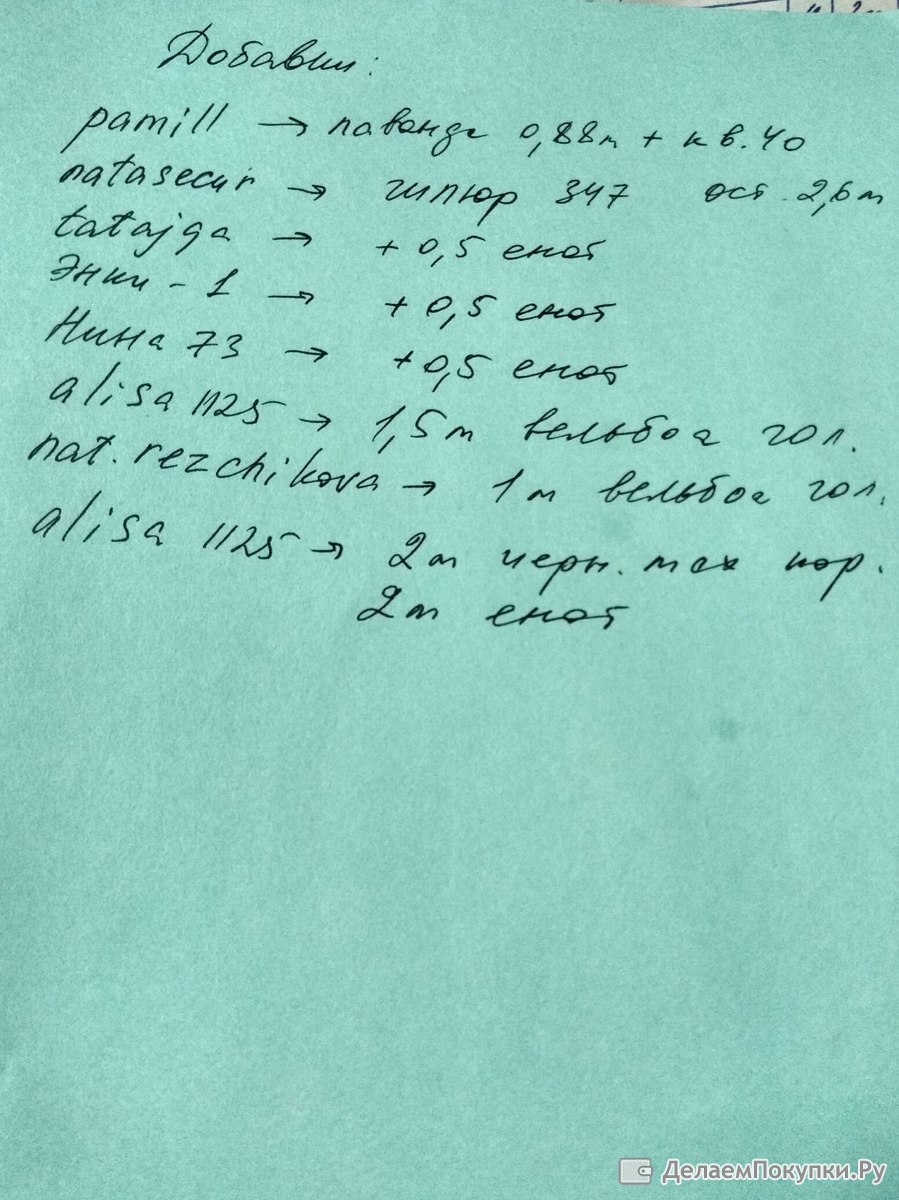 Добавки:
pamill → лаванда 0,88м + кв. 40
natasecur → гипюр 347 ост. 2,6м
tatajga → + 0,5 енот
Энки - 1 → + 0,5 енот
Нина 73 → +0,5 енот
alisa 1125 → 1,5м вельбоа гол.
nat. rezchikova → 1м вельбоа гол.
alisa 1125 → 2м черн. мех кор.
2м енот
ДелаемПокупки.Ру